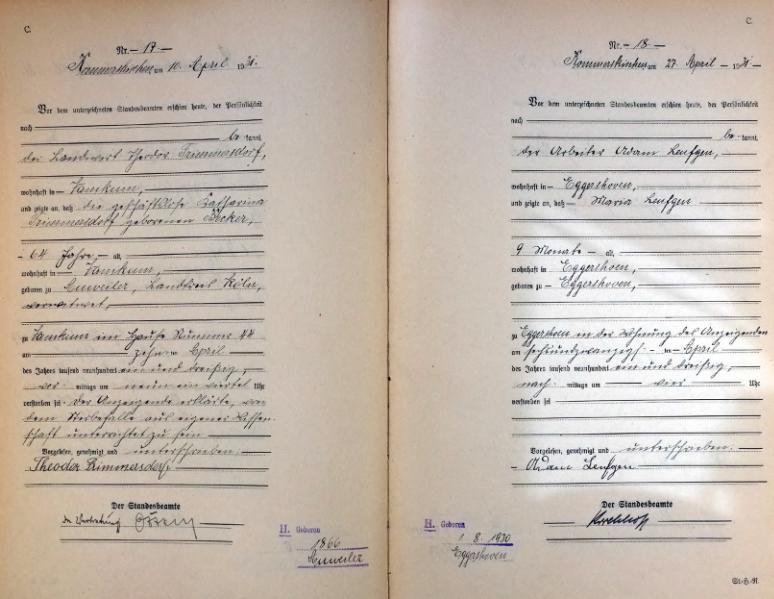 C.
Nr. 17
Rommerskirchen am 10. April 1931.
Vor dem unterzeichneten Standesbeamten erschien heute, der Persönlichkeit
nach
be kannt,
der Landwirt Theodor
wohnhaft in
und zeigte an, daß die geschäftslose Katharina
geborenen Becker,
64 Jahre, alt,
wohnhaft in
geboren zu Landkreis Köln,
verwitwet,
zu im Hause Nummer 44
am zehn ten April
des Jahres tausend neunhundert ein und dreißig,
vor mittags um neun ein viertel Uhr
verstorben sei. Der Anzeigende erklärte, von
dem Sterbefalle aus eigener Wissen-
schaft unterrichtet zu sein
Vorgelesen, genehmigt und unterschrieben.
Theodor
Der Standesbeamte
In Vertretung
H. Geboren
1866
C.
Nr. 18
Rommerskirchen am 27. April 1931
Vor dem unterzeichneten Standesbeamten erschien heute, der Persönlichkeit
nach
be kannt,
der Arbeiter Adam Leufgen,
wohnhaft in Eggershoven,
und zeigte an, daß Maria Leufgen
9 Monate alt,
wohnhaft in Eggershoven,
geboren zu Eggershoven,
zu Eggershoven in der Wohnung des Anzeigenden
am sechsundzwanzigsten April
des Jahres tausend neunhundert ein und dreißig,
nach mittags um vier Uhr
verstorben sei
Vorgelesen, genehmigt und unterschrieben.
Adam Leufgen
Der Standesbeamte
H. Geboren
1 8. 1930
Eggershoven
St.-H.-R.